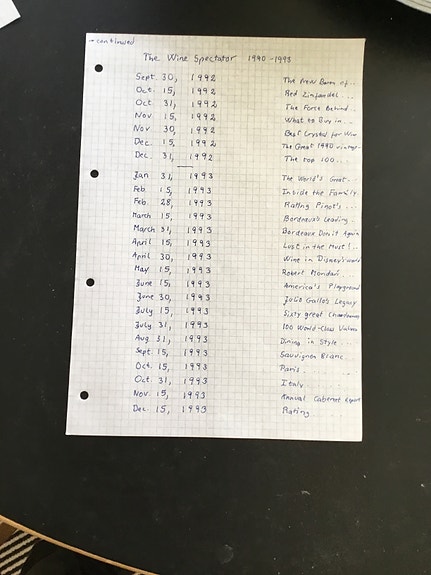 → continued
The Wine Spectator 1990-1993
Sept. 30, 1992 The New Baron of...
Oct. 15, 1992 Red Zinfandel...
Oct. 31, 1992 The Force Behind...
Nov. 15, 1992 What to Buy in...
Nov. 30, 1992 Best Crystal for Wine
Dec. 15, 1992 The Great 1990 vintage...
Dec. 31, 1992 The top 100...
Jan. 31, 1993 The World's Great...
Feb. 15, 1993 Inside the Family
Feb. 28, 1993 Rating Pinot's...
March 15, 1993 Bordeaux's Leading...
March 31, 1993 Bordeaux Does it Again
April 15, 1993 Lust in the Must!...
April 30, 1993 Wine in Disney's world
May 15, 1993 Robert Mondavi...
June 15, 1993 America's Playground
June 30, 1993 Julio Gallo's Legacy
July 15, 1993 Sixty great Chardonnays
July 31, 1993 100 World-Class Values
Aug. 31, 1993 Dining in Style...
Sept. 15, 1993 Sauvignon Blanc...
Oct. 15, 1993 Paris...
Oct. 31, 1993 Italy...
Nov. 15, 1993 Annual Cabernet Report
Dec. 15, 1993 Rating